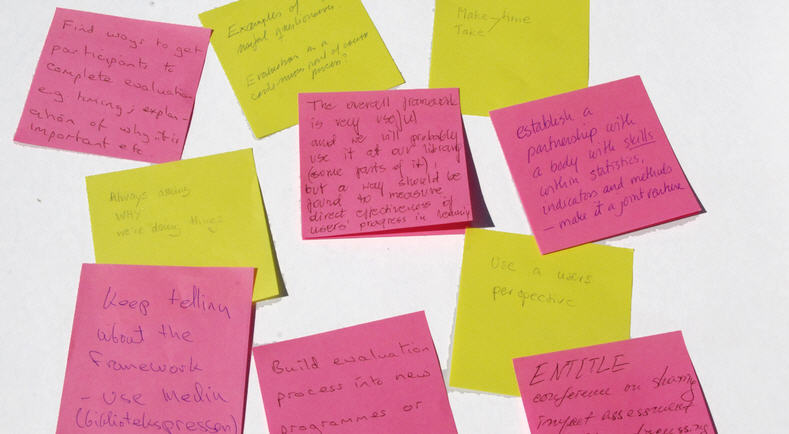 Find ways to get
participants to
complete evaluation
e.g timing, explan-
ation of why it is
important etc
Examples of
useful questionnaires.
Evaluation as a
continuous part of
process?
Make time
Take
The overall framework
is very useful
and we will probably
use it at our library
(some parts of it),
but a way should be
found to measure
direct effectiveness of
users' progress in
establish a
partnership with
a body with skills
within statistics,
indicators and methods
- make it a joint venture
Always asking
WHY
we're doing things
Use a users
perspective
Keep telling
about the
framework
- use Media
(bibliotekspressen)
Build evaluation
process into new
programmes or
ENTITLE
conference on sharing
impact assessment